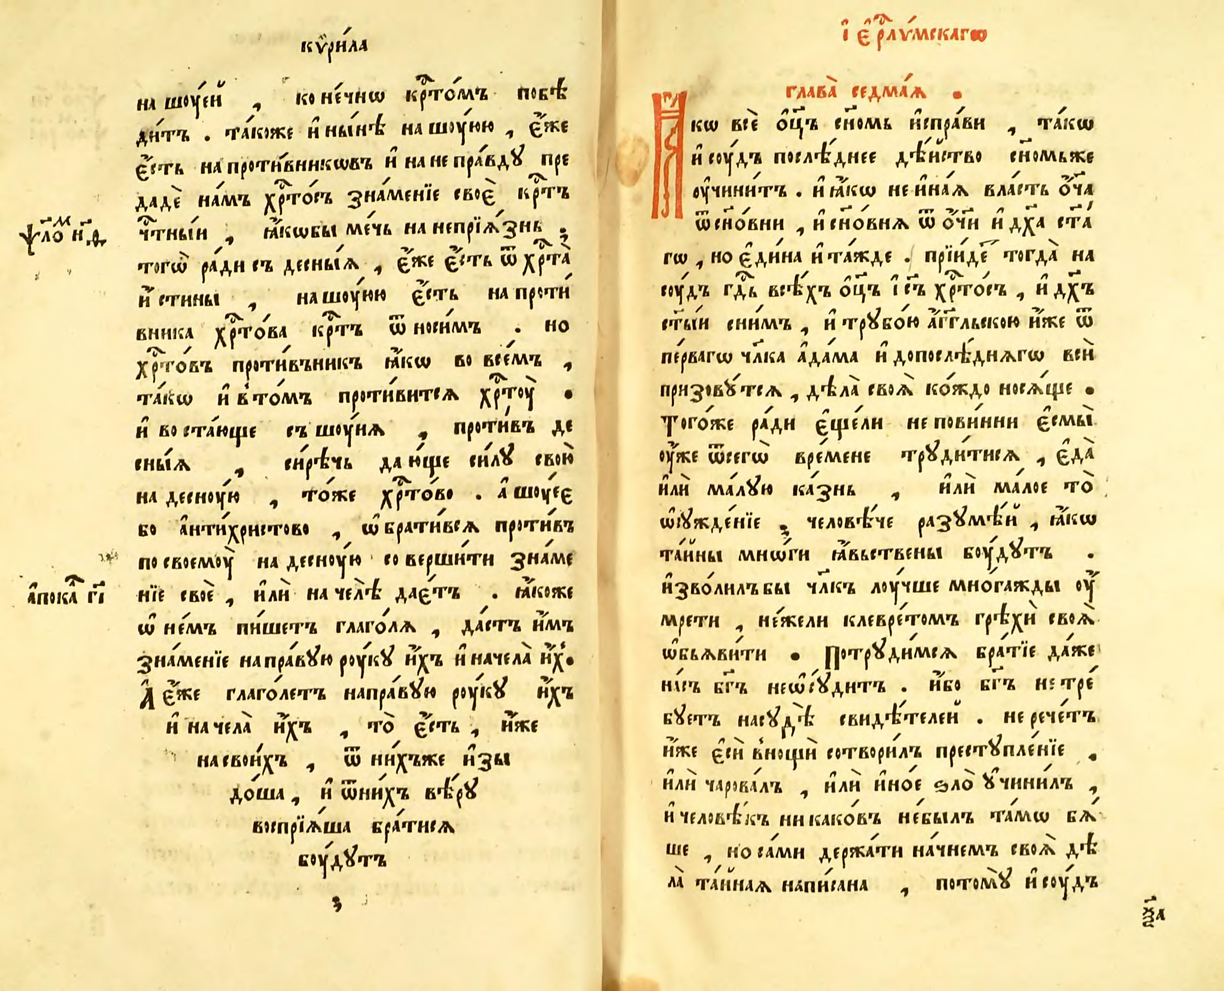 кѷри́ла
на шоу́ей , коне́чнѡ кр҃то́мъ побѣ
ди́тъ . та́коже и҆ ны́нѣ на шоу́юю , є҆́же
є҆́сть на проти́вникѡвъ и҆ на непра́вдꙋ пре
дадѐ на́мъ хр҃то́съ зна́менїе своѐ кр҃тъ
чт҃ны́и , ꙗ҆́кѡбы ме́чь на непрїѧ́знь ;
ѱло́м н҃ѳ
тогѡ̀ ра́ди съ десны́ѧ , є҆́же є҆́сть ѿ хр҃та̀
и҆́стины , на шоу́юю є҆́сть на проти
вника хр҃то́ва кр҃тъ ѿно́симъ . но
хр҃то́въ проти́въникъ ꙗ҆́кѡ во все́мъ ,
та́кѡ и҆ в̾то́мъ проти́витсѧ хр҃тоу̀ .
и҆ воста́юще съ шоу́иѧ , проти́въ де
сны́ѧ , си́рѣчь даю́ще си́лꙋ свою̀
на десноу́ю , то́же хр҃то́во . а҆ шоу́ее
бо а҆нти́христово , ѡ҆брати́всѧ проти́въ
по своемоу̀ на десноу́ю соверши́ти зна́ме
нїе своѐ , и҆лѝ на че́лѣ дае́тъ . ꙗ҆́коже
а҆пока́л г҃і
ѡ҆ не́мъ пи́шетъ глаго́лѧ , да́стъ и҆̀мъ
зна́менїе на пра́вꙋю роу́кꙋ и҆́хъ и҆ на чела̀ и҆́х .
А҆ є҆́же глаго́летъ на пра́вꙋю роу́кꙋ и҆́хъ
и҆ на чела̀ и҆́хъ , то̀ є҆́сть , и҆́же
на свои́хъ , ѿ ни́хъже и҆зы
до́ша , и҆ ѿни́хъ вѣ́рꙋ
воспрїѧ́ша бра́тисѧ
боу́дꙋтъ
з
і҆ є҆р҃лꙋ́мскагѡ
глава̀ седма́ѧ .
Ꙗкѡ всѐ о҆ц҃ъ сн҃омь и҆спра́ви , та́кѡ
и҆ соу́дъ послѣ́днее дѣ́йство сн҃омьже
оу҆чини́тъ . и҆ ꙗ҆́кѡ не и҆на́ѧ вла́сть о҆́ч҃а
ѿ сн҃о́вни , и҆ сн҃о́внѧ ѿ о҆́ч҃и и҆ дх҃а ст҃а́
гѡ , но є҆ди́на и҆ та́жде . прїи́де тогда̀ на
соу́дъ гд҃ь всѣ́хъ о҆ц҃ъ і҆ с҃ъ хр҃то́съ , и҆ дх҃ъ
ст҃ы́и сни́мъ , и҆ трꙋбо́ю а҆́гг҃льскою и҆́же ѿ
пе́рвагѡ чл҃ка а҆да́ма и҆ до послѣ́днѧгѡ всѝ
призовꙋ́тсѧ , дѣла̀ своѧ̀ ко́ждо носѧ́ще .
Тогѡ́же ра́ди є҆ще́ли непови́нни є҆смы̀
оу҆́же ѿсегѡ̀ вре́мене трꙋди́тисѧ , є҆да̀
и҆лѝ ма́лꙋю ка́знь , и҆лѝ ма́лое то̀
ѡ҆сꙋжде́нїе ; человѣ́че разꙋмѣ́й , ꙗ҆́кѡ
та́йны мнѡ́ги ꙗ҆́вьствены боу́дꙋтъ .
и҆зво́лилъбы чл҃къ лоу́чше многа́жды оу҆
мре́ти , не́жели клевре́томъ грѣхѝ своѧ̀
ѡ҆бьѧви́ти . Потрꙋди́мсѧ бра́тїе да́же
на́съ бг҃ъ не ѡ҆сꙋ́дитъ . и҆́бо бг҃ъ не тре́
бꙋетъ на сꙋдѣ̀ свидѣ́телей . не рече́тъ
и҆́же є҆сѝ в̾нощѝ сотвори́лъ престꙋпле́нїе ,
и҆лѝ чарова́лъ , и҆лѝ и҆но́е ѕло̀ ꙋ҆чини́лъ ,
и҆ человѣ́къ никако́въ не́былъ та́мѡ бѧ́
ше , но са́ми держа́ти на́чнемъ своѧ̀ дѣ
ла̀ та́йнаѧ напи́сана , пото́мꙋ и҆ соу́дъ
ѯ҃а